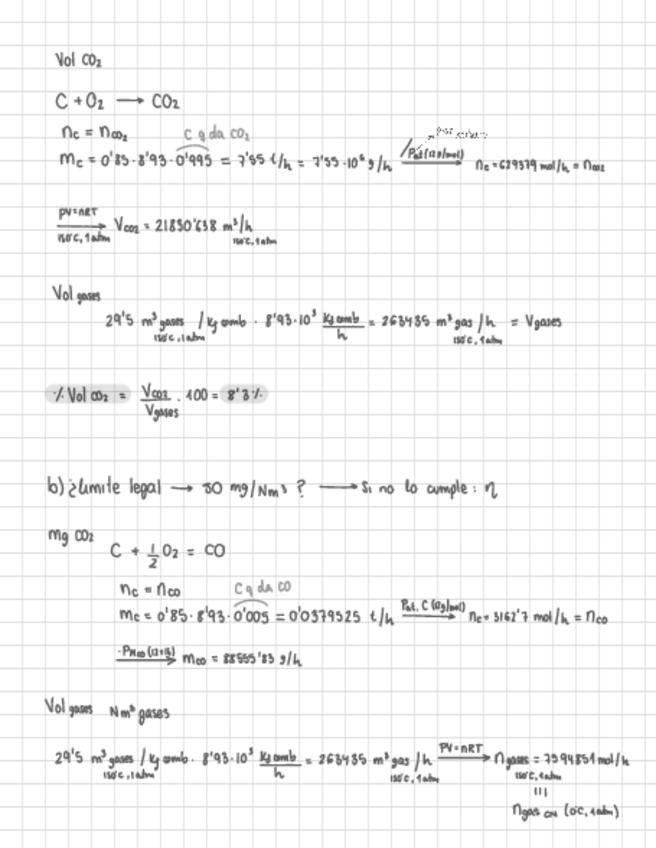 Vol CO₂
C + O₂ → CO₂
nc = nco₂ C q da CO₂
mc = 0'85 · 8'93 · 0'995 = 7'55 t/h = 7'55·10⁶ g/h → /Pat (12 g/mol) nc = 629379 mol/h = nco₂
PV=nRT → 150°C, 1 atm Vco₂ = 21830'638 m³/h 150°C, 1 atm
Vol gases
29'5 m³ gases / kg comb · 8'93·10³ kg comb / h = 263435 m³ gas / h = Vgases
150°C, 1 atm 150°C, 1 atm
% Vol CO₂ = Vco₂ / Vgases · 100 = 8'3 %
b) ¿Límite legal → 50 mg/Nm³ ? → Si no lo cumple : η
mg CO₂
C + 1/2 O₂ = CO
nc = nco C q da CO
mc = 0'85 · 8'93 · 0'005 = 0'0379525 t/h → Pat. C (12g/mol) nc = 3162'7 mol/h = nco
·PMco (12+16) → mco = 88555'83 g/h
Vol gases Nm³ gases
29'5 m³ gases / kg comb · 8'93·10³ kg comb / h = 263435 m³ gas / h → PV=nRT ngases = 7594851 mol/h
150°C, 1 atm 150°C, 1 atm 150°C, 1 atm
|||
ngas CN (0°C, 1 atm)